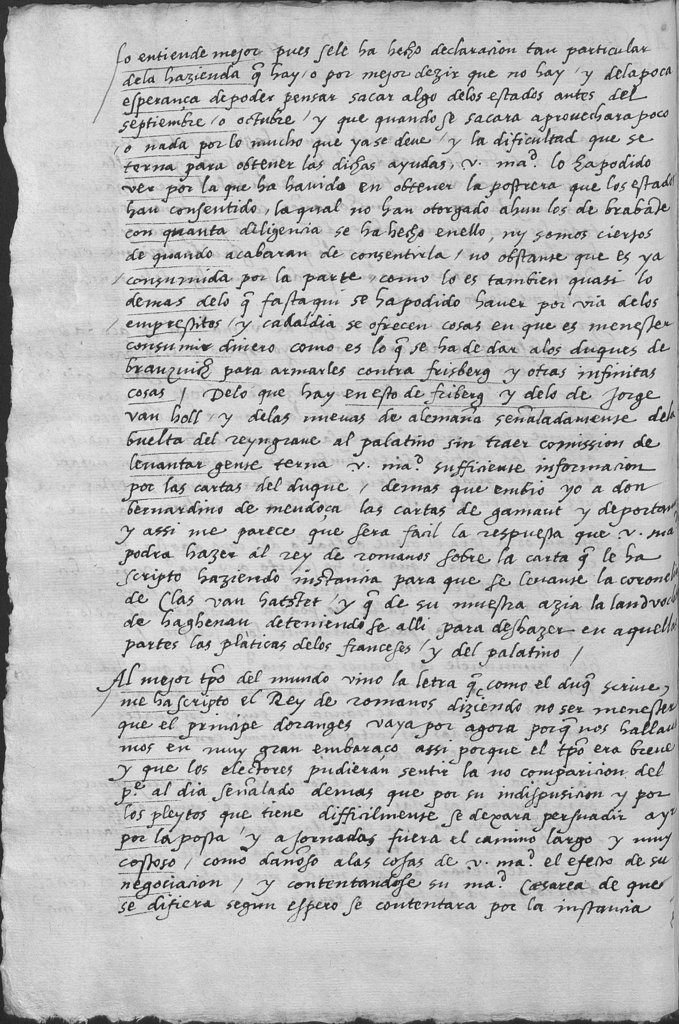 lo entiende mejor pues sele ha hecho declaracion tan particular
dela hazienda q̃ hay / o por mejor dezir que no hay / y dela poca
esperança de poder pensar sacar algo delos estados antes del
septiembre / o octubre / y que quando se sacara aprovechara poco
o nada por lo mucho que ya se deve / y la dificultad que se
terna para obtener las dichas ayudas, v. mad. lo ha podido
ver por la que ha havido en obtener la postrera que los estados
han consentido, la qual no han otorgado ahun los de brabāte
con quanta diligencia se ha hecho enello, ny somos ciertos
de quando acabaran de consentirla / no obstante que es ya
consumida por la parte, como lo es tambien quasi lo
demas delo q̃ fasta qui se ha podido haver por via delos
emprestitos / y cadaldia se ofrecen cosas en que es menester
consumir dinero como es lo q̃ se ha de dar alos duques de
branzuiq̃ para armarles contra frisberg y otras infinitas
cosas / Delo que hay en esto de friberg y delo de Jorge
van holl / y delas nuevas de alemaña señaladamente dela
buelta del reyngrave al palatino sin traer comission de
levantar gente terna v. mad. sufficiente informacion
por las cartas del duque / demas que embio yo a don
bernardino de mendoça las cartas de gamaut y de portan
y assi me parece que sera facil la respuesta que v. mad
podra hazer al rey de romanos sobre la carta q̃ le ha
scripto haziendo instancia para que se levante la coronelia
de Clas van hatstet / y q̃ de su muestra azia la landvoch
de haghenau deteniendose alli para deshazer en aquellas
partes las plàticas delos franceses / y del palatino /
Al mejor tp̃o del mundo vino la letra q̃ como el duq̃ scrive,
me ha scripto el Rey de romanos diziendo no ser menester
que el principe doranges vaya por agora porq̃ nos halla
mos en muy gran embaraço assi porque el tp̃o era breve
y que los electores pudieran sentir la no comparicion del
pe. al dia señalado demas que por su indispusicion y por
los pleytos que tiene difficilmente se dexara persuadir a yr
por la posta / y a jornadas fuera el camino largo y muy
costoso / como dañoso alas cosas de v. mad. el efecto de su
negociacion / y contentandose su mad. Cæsarea de que
se difiera segun espero se contentara por la instancia